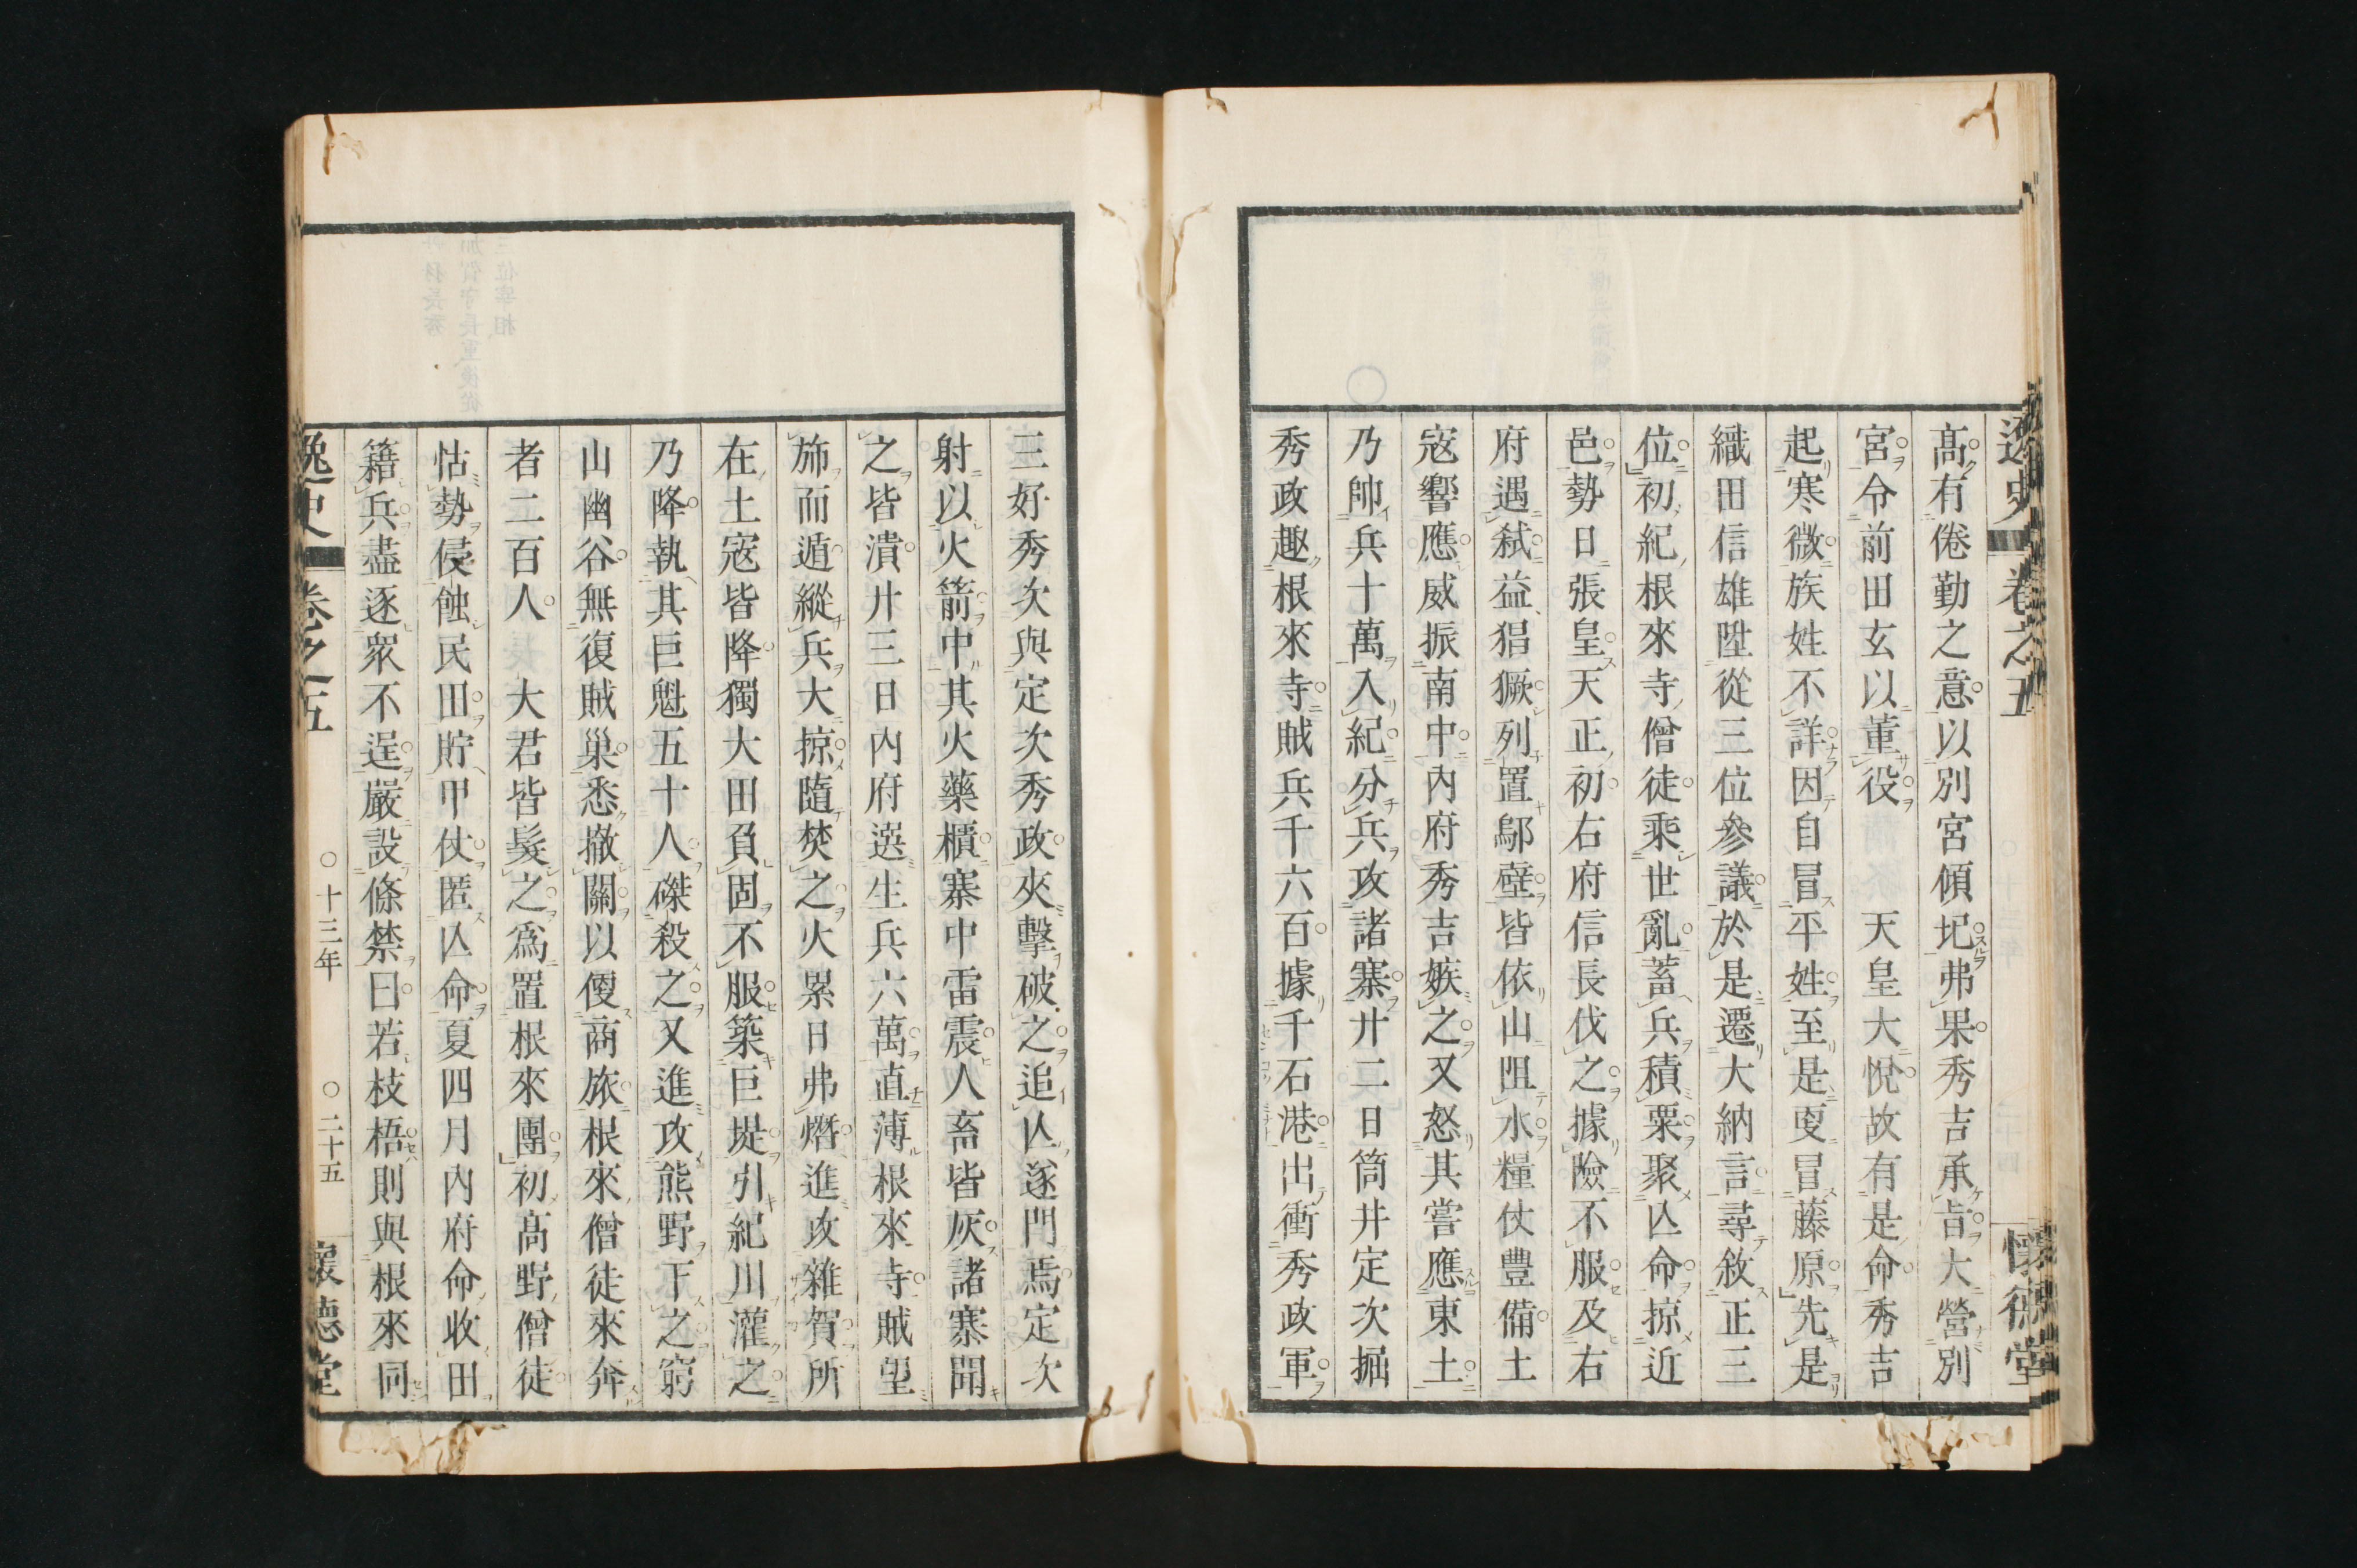 逸史 卷之五 懷德堂
高有倦勤之意以別宮傾圯弗果秀吉承旨大營別
宮令前田玄以董役 天皇大悅故有是命秀吉
起寒微族姓不詳因自冒平姓至是更冒藤原先是
織田信雄陞從三位參議於是遷大納言尋敘正三
位初紀根來寺僧徒乘世亂蓄兵積粟聚亾命掠近
邑勢日張皇天正初右府信長伐之據險不服及右
府遇弑益猖獗列置鄔壁皆依山阻水糧仗豊備土
寇響應威振南中內府秀吉嫉之又怒其嘗應東土
乃帥兵十萬入紀分兵攻諸寨廿二日筒井定次掘
秀政趣根來寺賊兵千六百據千石港出衝秀政軍
三好秀次與定次秀政夾擊破之追亾逐門焉定次
射以火箭中其火藥櫃寨中雷震人畜皆灰諸寨聞
之皆潰廿三日內府選生兵六萬直薄根來寺賊望
斾而遁縱兵大掠隨焚之火累日弗熸進攻雜賀所
在土寇皆降獨大田負固不服築巨堤引紀川灌之
乃降執其巨魁五十人磔殺之又進攻熊野下之窮
山幽谷無復賊巢悉撤關以便商旅根來僧徒來奔
者二百人 大君皆髮之爲置根來團初高野僧徒
怙勢侵蝕民田貯甲仗匿亾命夏四月內府命收田
籍兵盡逐衆不逞嚴設條禁曰若枝梧則與根來同
逸史 卷之五 ○十三年 ○二十五 懷德堂